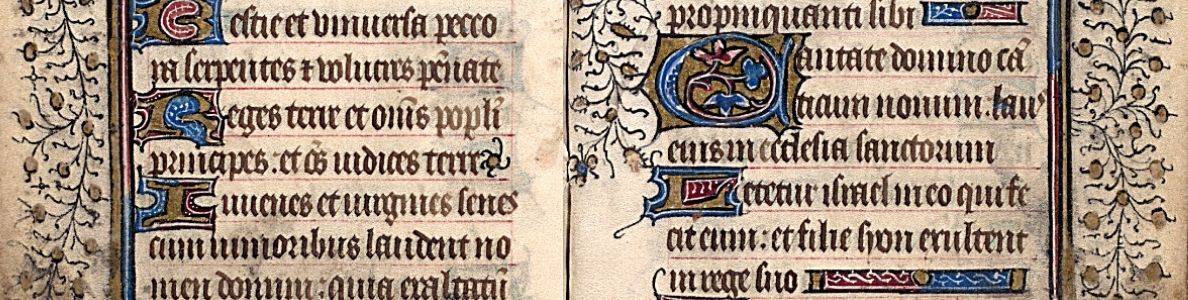 Bestie et vniuersa pecco
ra serpentes ⁊ volucres pēnate
Reges terre et om̄s popli
principes : et oēs iudices terre
Iuuenes et uirgines senes
cum iunioribus laudent no
men domini : quia exaltatū
propinquanti sibi
Cantate domino cā
ticum nouum : laus
eius in ecclesia sanctorum
Letetur israel in eo qui fe
cit eum : et filie syon exultent
in rege suo